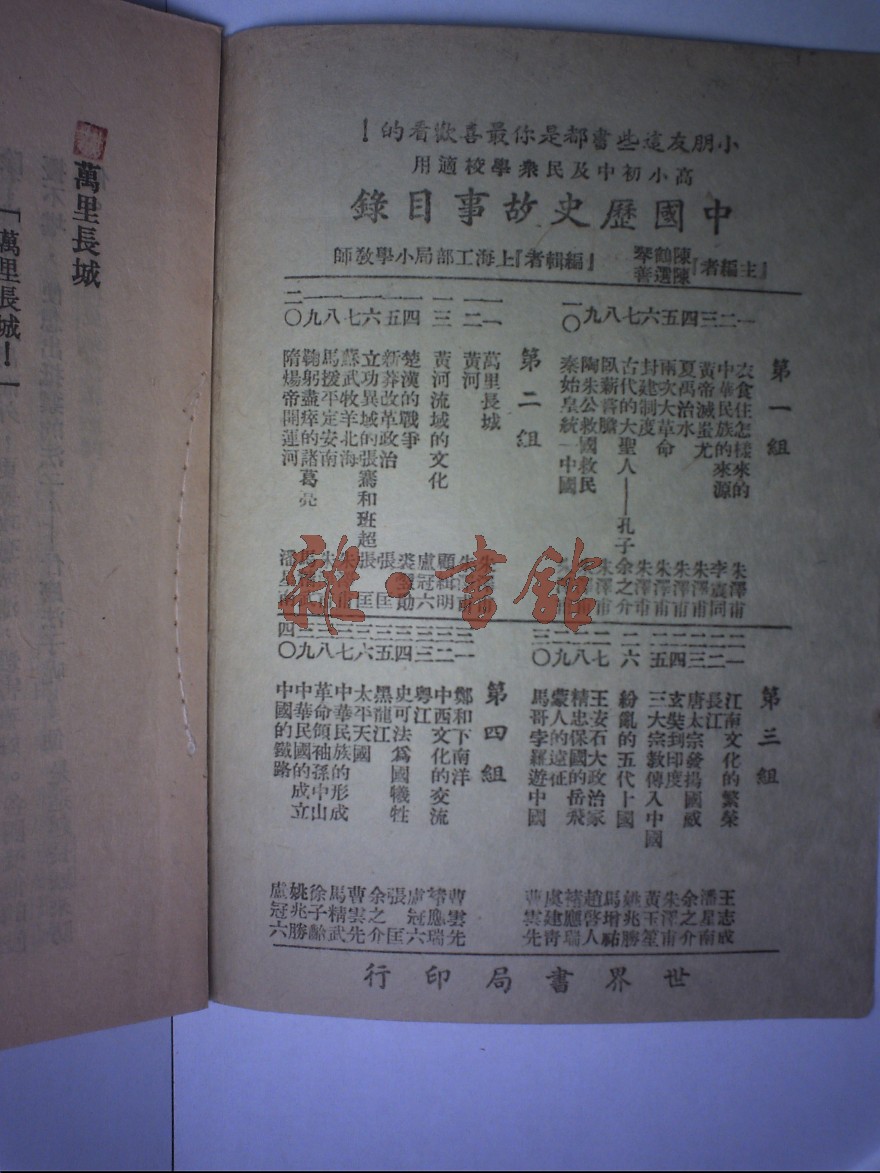 小朋友這些書都是你最喜歡看的！
高小初中及民衆學校適用
中國歷史故事目錄
『主編者』陳鶴琴 陳選善 『編輯者』上海工部局小學教師
第一組
一 衣食住怎樣來的 朱澤甫
二 中華民族的來源 李震同
三 黃帝滅蚩尤 朱澤甫
四 夏禹治水 朱澤甫
五 兩次大革命 朱澤甫
六 封建制度 朱澤甫
七 古代的大聖人——孔子 余之介
八 臥薪嘗膽
九 陶朱公救國救民
一〇 秦始皇統一中國
第二組
一一 萬里長城
一二 黃河
一三 黃河流域的文化 顧緝明
一四 楚漢的戰爭 盧冠六
一五 新莽改革政治
一六 立功異域的張騫和班超 張匡
一七 蘇武牧羊北海
一八 馬援平定安南
一九 鞠躬盡瘁的諸葛亮
二〇 隋煬帝開運河 潘星南
第三組
二一 江南文化的繁榮 王志成
二二 長江 潘星南
二三 唐太宗發揚國威 余之介
二四 玄奘到印度 朱澤甫
二五 三大宗教傳入中國 黃玉笙
二六 紛亂的五代十國 姚兆勝
二七 王安石大政治家 馬增祜
二八 精忠保國的岳飛 趙啓人
二九 蒙人的遠征 褚應瑞
三〇 馬哥孛羅遊中國 曹雲先
第四組
三一 鄭和下南洋 曹雲先
三二 中西文化的交流 褚應瑞
三三 粵江 盧冠六
三四 史可法爲國犧牲 張匡
三五 黑龍江 余之介
三六 太平天國 曹雲先
三七 中華民族的形成 馬精武
三八 革命領袖孫中山 徐子齡
三九 中華民國的成立 姚兆勝
四〇 中國的鐵路 盧冠六
世界書局印行
雜·書館
萬里長城
「萬里長城！